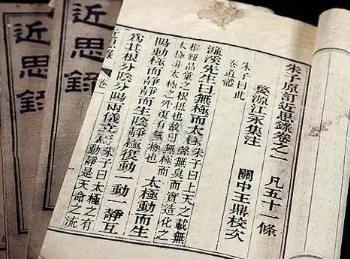 朱子原訂近思錄卷之一 凡五十一條
婺源江永集注
關中王鼎校次
朱子曰此
卷道體
濂溪先生曰無極而太極 朱子曰上天之載無
聲無臭而實造化之
樞紐品彙之根柢也故曰無極而
太極非太極之外復有無極也 太極動而生
陽動極而靜靜而生陰靜極復動一動一靜互
爲其根分陰分陽兩儀立焉 朱子曰太極之有
動靜是天命之流
近思錄 卷一
近思錄
近思錄